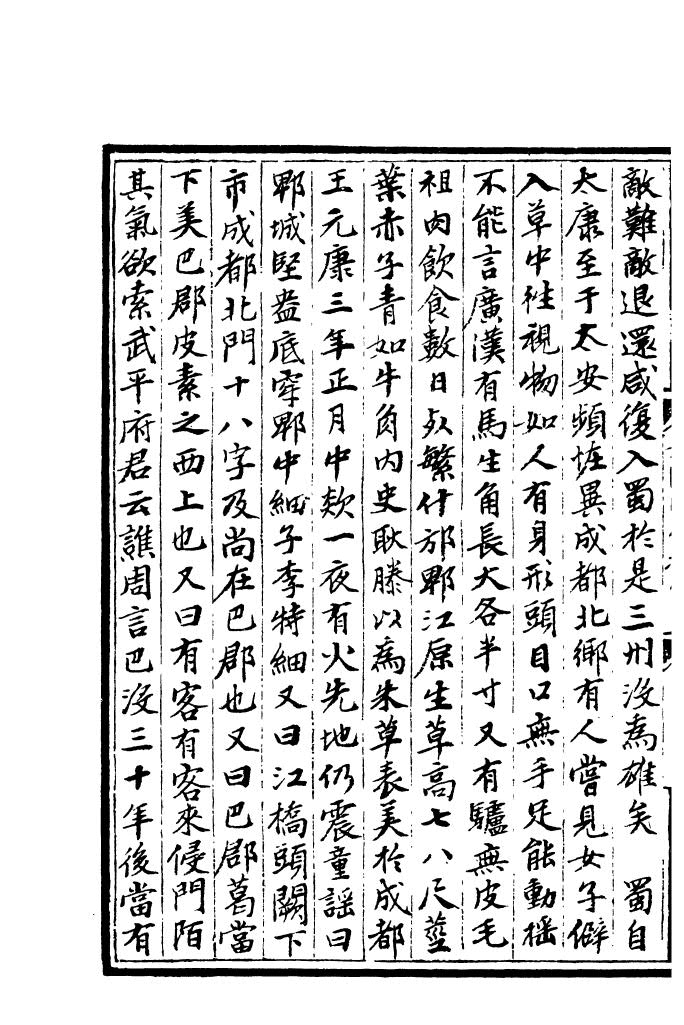 敵難敵退還咸復入蜀於是三州没為雄矣　蜀自
太康至于太安頻恠異成都北鄉有人嘗見女子僻
入草中徃視物如人有身形頭目口無手足能動揺
不能言廣漢有馬生角長大各半寸又有驢無皮毛
袒肉飲食數日𣦸繁什邡郫江原生草高七八尺莖
葉赤子青如牛角内史耿滕以為朱草表美於成都
王元康三年正月中欵一夜有火光地仍震童謡曰
郫城堅盎底穿郫中細子李特細又曰江橋頭闕下
市成都北門十八字及尚在巴郡也又曰巴郡葛當
下美巴郡皮素之西上也又曰有客有客來侵門陌
其氣欲索武平府君云譙周言巴没三十年後當有